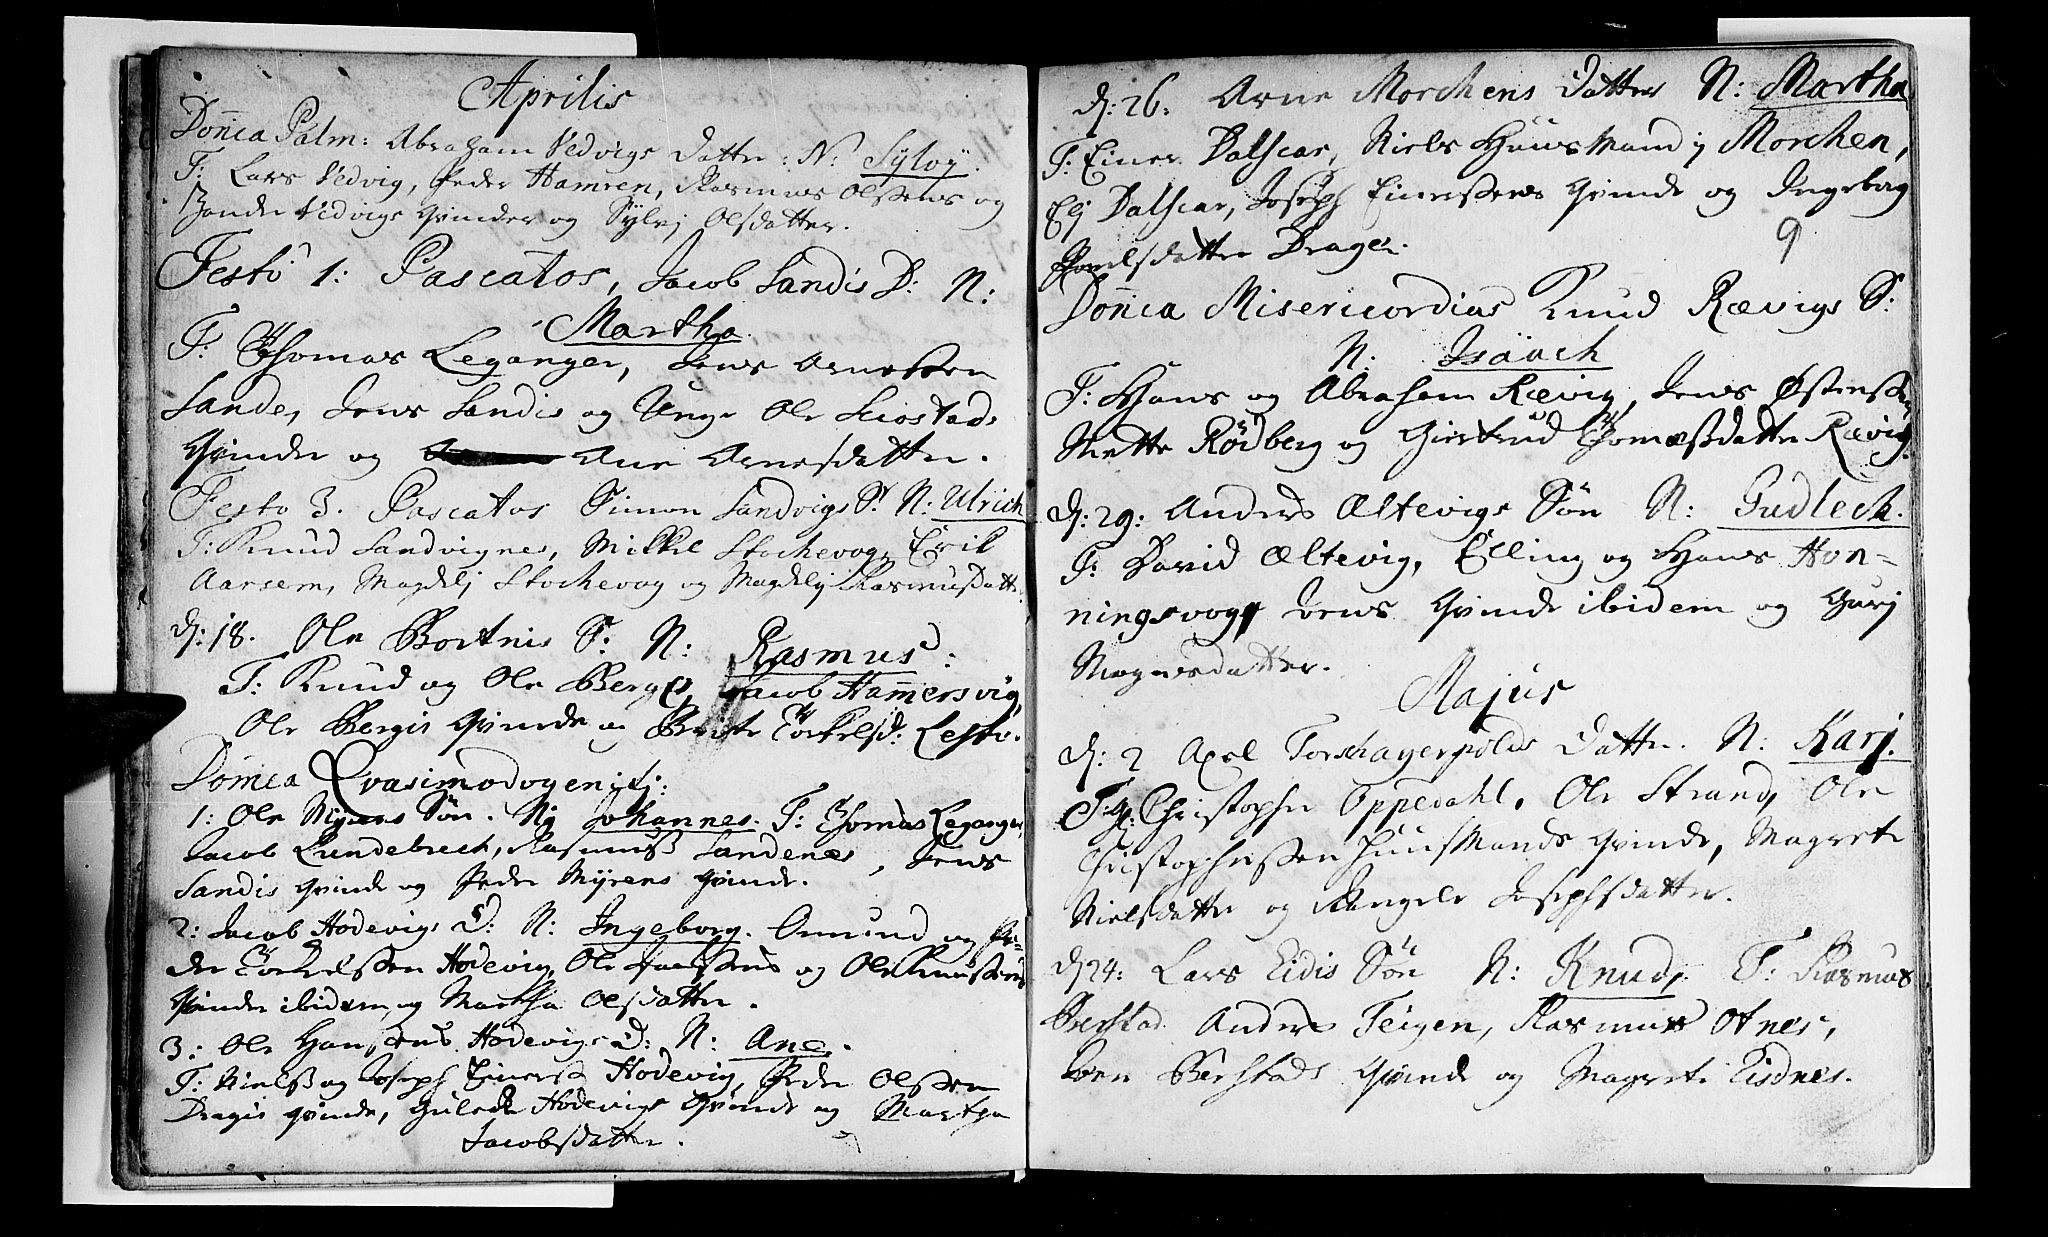 Aprilis
Dom̄ca Palm: Abraham Vedvigs Datter: N: Sylvÿ.
F: Lars Vedvig, Peder Hamren, Rasmus Olssens og
Vedvigs Qvinder og Sylvj Olsdatter.
Festo 1: Pascatos, Jacob Sandis D: N:
Martha.
F: Thomas Leganger, Jens Arnessen
Sande, Jens Sandis og Unge Ole Seiostads
Qvinder og Ane Arnesdatter.
Festo 3. Pascatos Simon Sandvigs S: N: Ulrich
F: Knud Sandvignes, Mikkel Stochevog, Erik
Aarsem, Magdelj Stochevog og Magdelj Rasmusdatt:
d: 18. Ole Bortnis S: N: Rasmus:
F: Knud og Ole Berge, Jacob Ham̄ersvig,
Ole Bergis Qvinde og Berte Törkelsd: Lesto.
Dom̄ca Qvasimodogenitj:
1: Ole Myrens Søn. N: Johannes. F: Thomas Leganger,
Jacob Lundebrech, Rasmus Sandenes, Jens
Sandis Qvinde og Peder Myrens Qvinde.
2: Jacob Hodevigs D: N: Ingeborg. Omund og Pe-
der Törkelssen Hodevig, Ole Hanssens og Ole Knussens
Qvinder ibidem, og Martha Olsdatter.
3: Ole Hanssens Hodevigs D: N: Ane.
F: Niels og Joseph Einerss Hodevig, Peder Olssen
Dragis Qvinde, Guleck Hodevigs Qvinde og Martha
Jacobsdatter.
d: 26: Arne Morchens Datter N: Martha
F: Einer Dalscar, Niels Huusmand j Morchen,
Elj Dalscar, Joseph Einerssens Qvinde og Ingeborg
9
Povelsdatter Drage.
Dom̄ca Misericordias Knud Rævigs S:
N: Isaach
F: Hans og Abraham Rævig, Jens Østenssen,
Mette Rødberg og Giertrud Thomasdatter Rævig.
d: 29: Anders Æltevigs Søn N: Gudlech.
F: David Æltevig, Elling og Hans Hon-
ningsvog, Jens Qvinde ibidem og Gurj
Mognesdatter.
Majus
d: 2 Axel Torschagerpolds Datter. N: Karj.
F: Christopher Oppedahl, Ole Strand, Ole
Christophersen Huusmands Qvinde, Magrete
Nielsdatter og Rangele Josephsdatter.
d: 24: Lars Eidis Søn N: Knud, F: Rasmus
Berstad Anders Teigen, Rasmus Otnes,
Iver Berstads Qvinde og Magrete Eidnes.